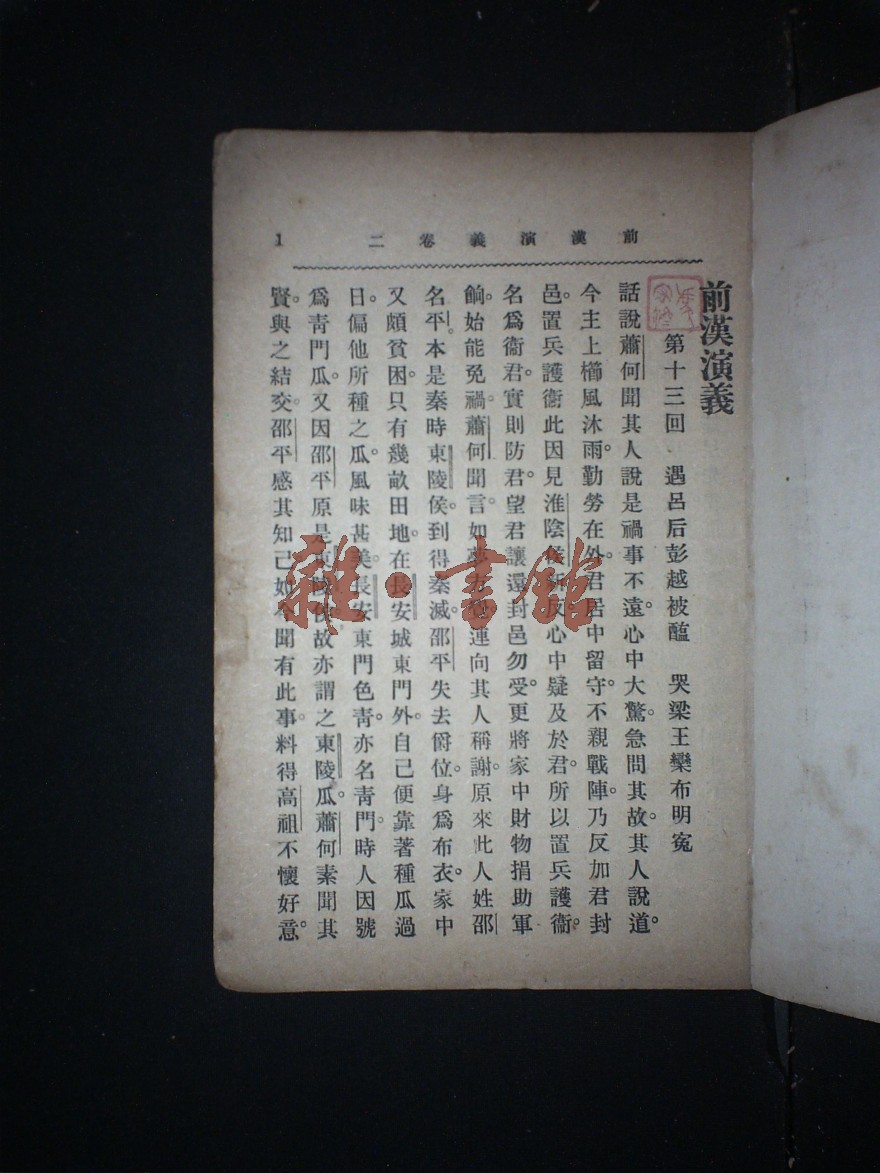 前漢演義卷二 1
前漢演義
第十三回 遇呂后彭越被醢 哭梁王欒布明冤
話說蕭何聞其人說是禍事不遠。心中大驚。急問其故。其人說道。
今主上櫛風沐雨。勤勞在外。君居中留守。不親戰陣。乃反加君封
邑。置兵護衞。此因見淮陰侯新反。心中疑及於君。所以置兵護衞。
名爲衞君。實則防君。望君讓還封邑勿受。更將家中財物捐助軍
餉。始能免禍。蕭何聞言。如夢方連向其人稱謝。原來此人姓邵
名平。本是秦時東陵侯。到得秦滅。邵平失去爵位。身爲布衣。家中
又頗貧困。只有幾畝田地。在長安城東門外。自己便靠著種瓜過
日。偏他所種之瓜。風味甚美。長安東門色靑。亦名靑門。時人因號
爲靑門瓜。又因邵平原是東陵侯。故亦謂之東陵瓜。蕭何素聞其
賢。與之結交。邵平感其知己。如今聞有此事。料得高祖不懷好意。
雜·書館